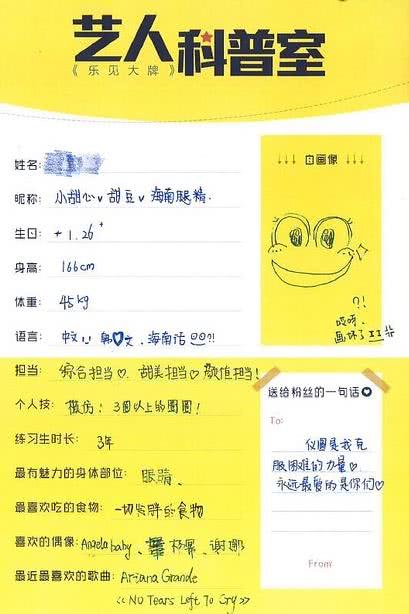 艺人科普室
《乐见大牌》
姓名:
昵称: 小甜心∨甜豆∨海南腿精.
生日: +1.26+
身高: 166cm
体重: 45kg
语言: 中文 韩♡文、海南话 ?!
担当: 综合担当♡. 甜美担当♡ 颜值担当!
个人技: 模仿: 3個以上的图图!
练习生时长: 3年
最有魅力的身体部位: 眼睛.
最喜欢吃的食物: 一切发胖的食物
喜欢的偶像: Angelababy、杨幂、谢娜
最近最喜欢的歌曲: Ariana Grande
<< No Tears Left To Cry >>
↓↓↓ 自画像 ↓↓↓
?!
哎呀.
画坏了
送给粉丝的一句话♥
To:
仪圈是我克
服困难的力量♡
永远最爱的是你们♡
From